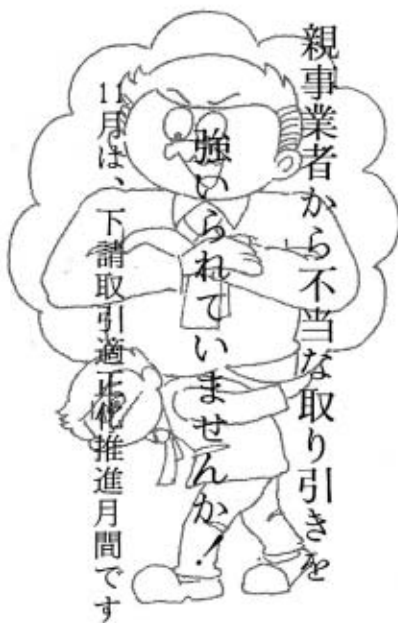 親事業者から不当な取り引きを
強いられていませんか!
11月は、下請取引適正化推進月間です